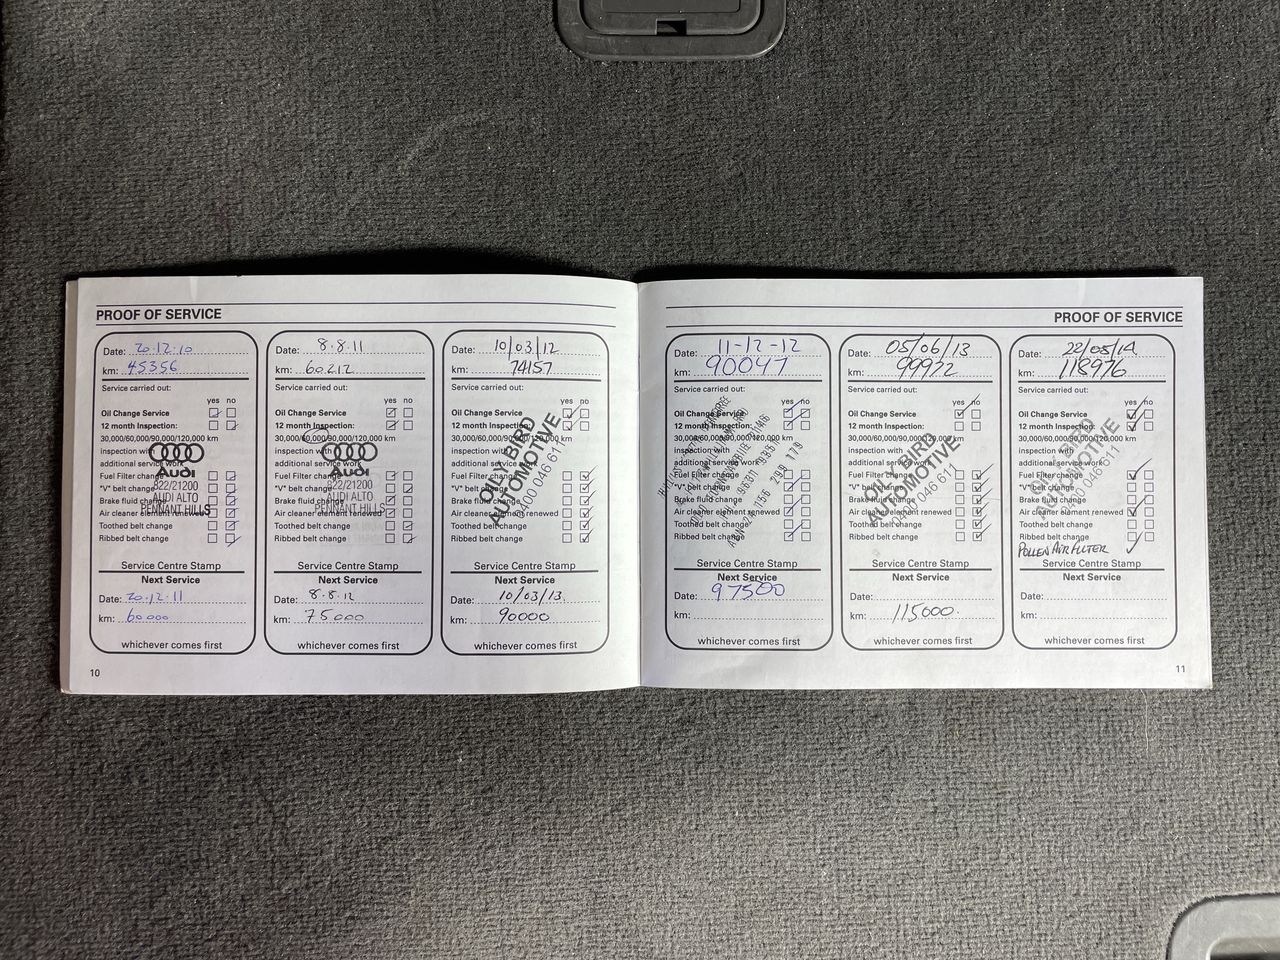 PROOF OF SERVICE
Date: 20.12.10
km: 45356
Service carried out:
yes no
Oil Change Service
12 month Inspection:
30,000/60,000/90,000/120,000 km
inspection with
additional service work
Fuel Filter change
"V" belt change
Brake fluid change
Air cleaner element renewed
Toothed belt change
Ribbed belt change
Audi
822/21200
AUDI ALTO
PENNANT HILLS
Service Centre Stamp
Next Service
Date: 20.12.11
km: 60000
whichever comes first
Date: 8.8.11
km: 60212
Service carried out:
yes no
Oil Change Service
12 month Inspection:
30,000/60,000/90,000/120,000 km
inspection with
additional service work
Fuel Filter change
"V" belt change
Brake fluid change
Air cleaner element renewed
Toothed belt change
Ribbed belt change
Audi
822/21200
AUDI ALTO
PENNANT HILLS
Service Centre Stamp
Next Service
Date: 8.8.12
km: 75000
whichever comes first
Date: 10/03/12
km: 74157
Service carried out:
yes no
Oil Change Service
12 month Inspection:
30,000/60,000/90,000/120,000 km
inspection with
additional service work
Fuel Filter change
"V" belt change
Brake fluid change
Air cleaner element renewed
Toothed belt change
Ribbed belt change
OILY BIRD
AUTOMOTIVE
0400 046 611
Service Centre Stamp
Next Service
Date: 10/03/13
km: 90000
whichever comes first
10
PROOF OF SERVICE
Date: 11-12-12
km: 90047
Service carried out:
yes no
Oil Change Service
12 month Inspection:
30,000/60,000/90,000/120,000 km
inspection with
additional service work
Fuel Filter change
"V" belt change
Brake fluid change
Air cleaner element renewed
Toothed belt change
Ribbed belt change
Service Centre Stamp
Next Service
Date: 97500
km:
whichever comes first
Date: 05/06/13
km: 99922
Service carried out:
yes no
Oil Change Service
12 month Inspection:
30,000/60,000/90,000/120,000 km
inspection with
additional service work
Fuel Filter change
"V" belt change
Brake fluid change
Air cleaner element renewed
Toothed belt change
Ribbed belt change
OILY BIRD
AUTOMOTIVE
0400 046 611
Service Centre Stamp
Next Service
Date:
km: 115000.
whichever comes first
Date: 22/05/14
km: 118976
Service carried out:
yes no
Oil Change Service
12 month Inspection:
30,000/60,000/90,000/120,000 km
inspection with
additional service work
Fuel Filter change
"V" belt change
Brake fluid change
Air cleaner element renewed
Toothed belt change
Ribbed belt change
POLLEN AIR FILTER
OILY BIRD
AUTOMOTIVE
0400 046 611
Service Centre Stamp
Next Service
Date:
km:
whichever comes first
11